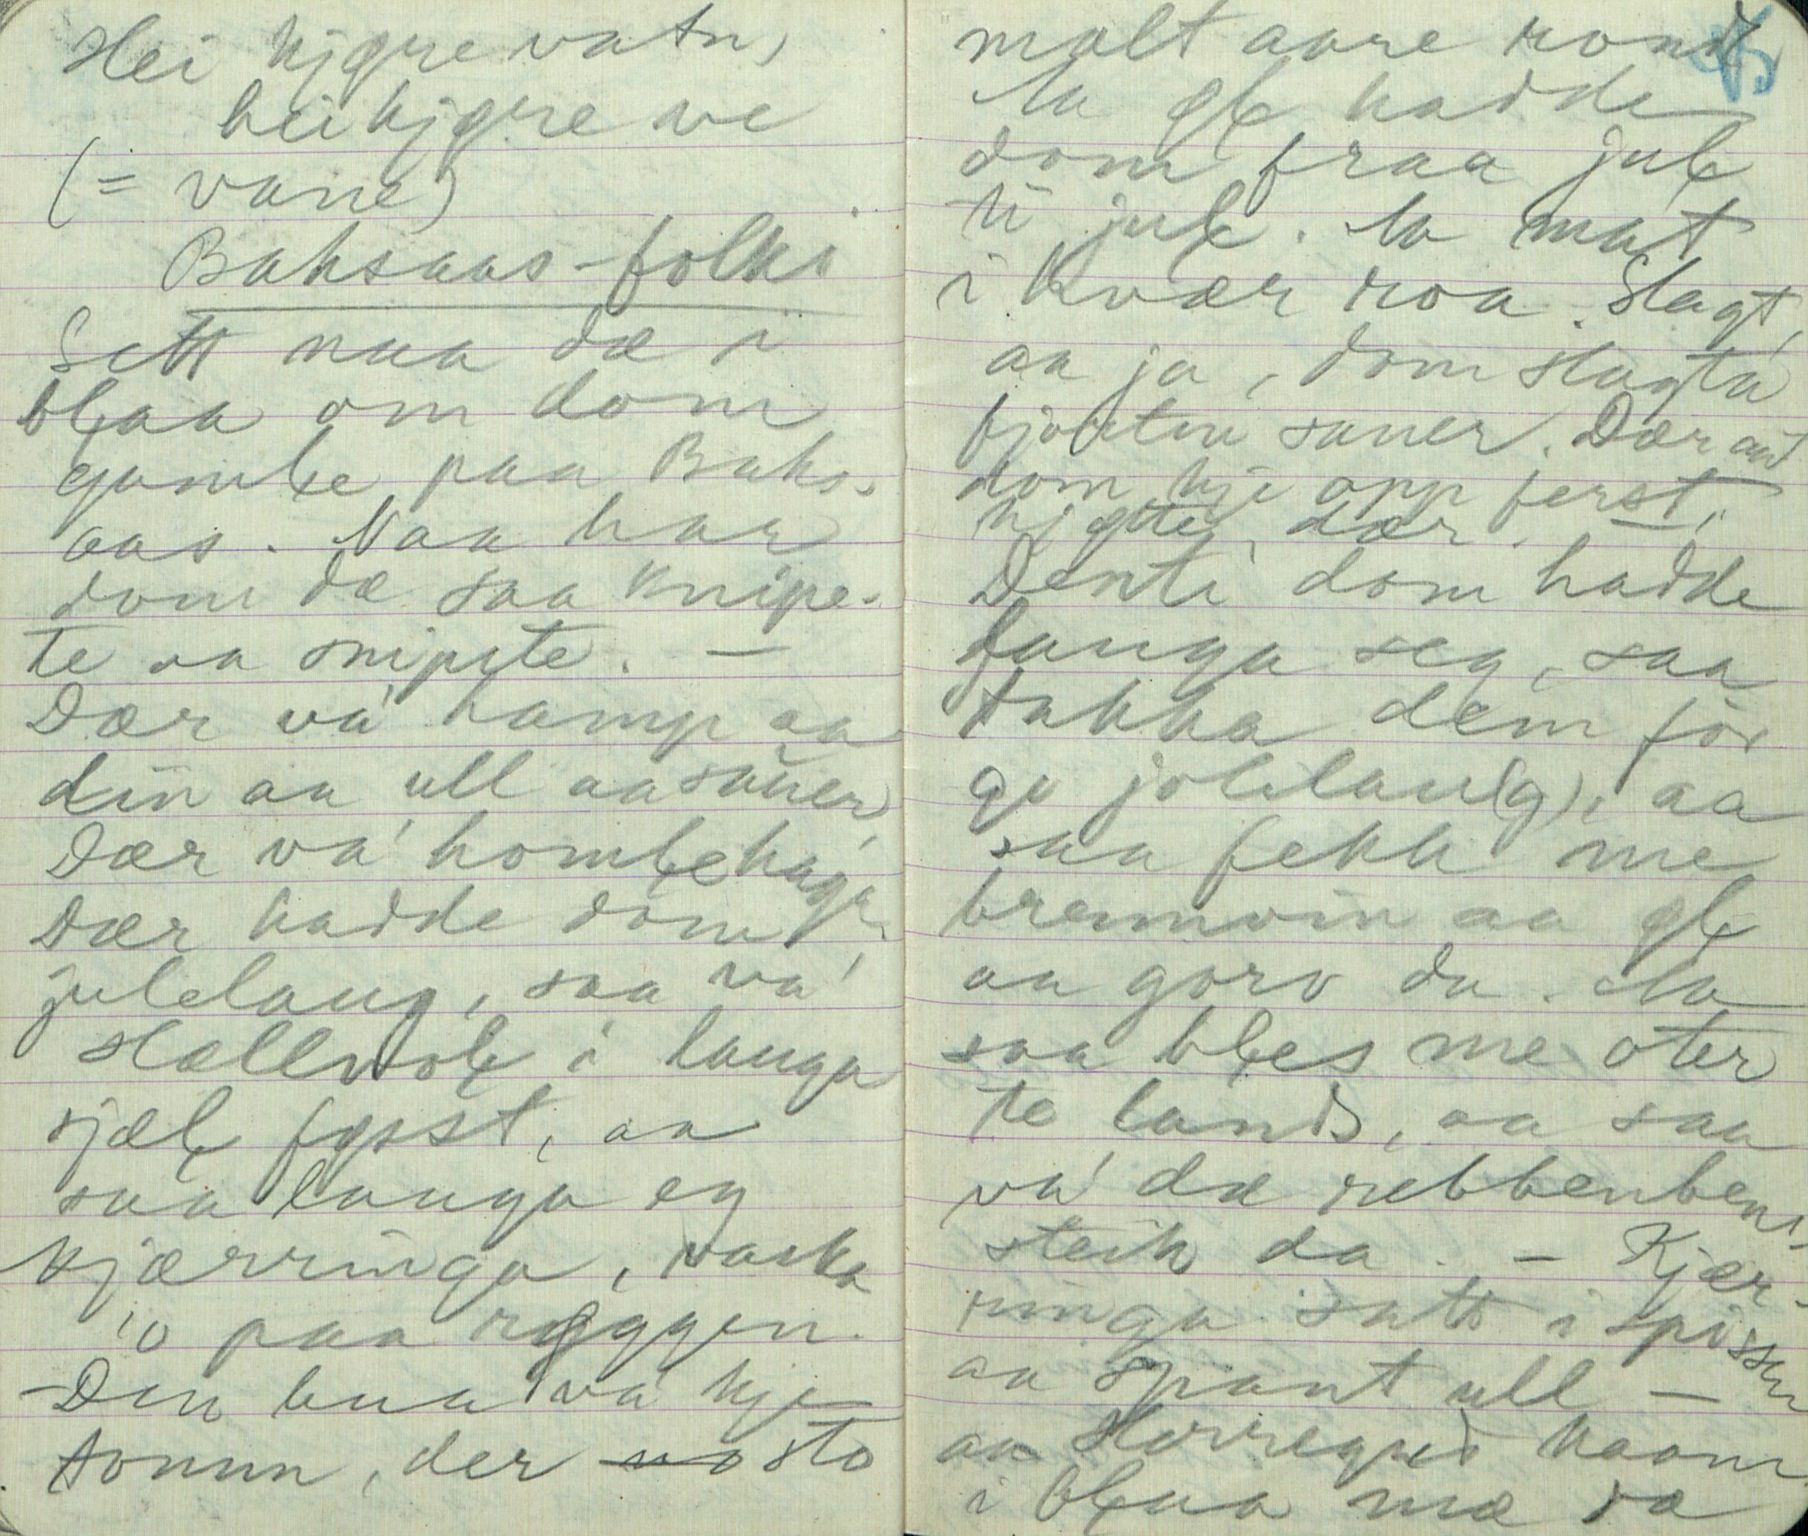 Hei kjøre vatn,
hei kjøre ve
(= vane)
Baksaas-folki
Sett naa dæ i
bļaa om dom
gamļe paa Baks-
aas. Naa har
dom dæ saa knipe-
te aa snipete. —
Dær va' hamp aa
lin aa ull aa sauer
Dær va' homļehage,
Dær hadde dom
julelaug, saa va'
Hællvoļ i lauga
sjæļ fysst, aa
saa lauga eg
kjærringa, vaska
'o paa ryggen.
— Den bua va' kje
tomm, der sto
malt aare rondt
Aa øļ hadde
dom fraa juļ
ti juļ. Aa mat
i kvær roa. Slagt,
aa ja, dom slagta
fjorten sauer. Dær aat
dom kje opp ferst,
kjøtte, dær. —
Denti dom hadde
lauga seg, saa
takka dem for
go' jolelau(g), aa
saa fekk me
brennvin aa øļ
aa gorv da. Aa
saa bļes me oter
te lands, aa saa
va' dæ rebbenbens-
steik da. — Kjær-
ringa satt i spissen
aa spant ull —
aa Herregud kaam
i bļaa mæ dæ